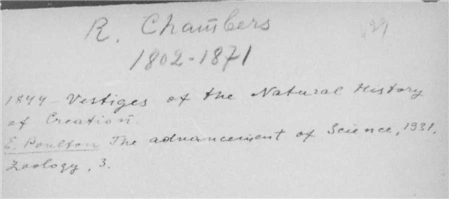 R. Chambers
1802-1871
1844 - Vestiges of the Natural History
of Creation.
E. Poulton The advancement of Science, 1931.
Zoology, 3.